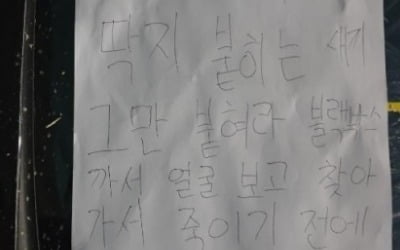 딱지 붙히는 새끼
그만 붙혀라 블랙박스
까서 얼굴 보고 찾아
가서 죽이기 전에